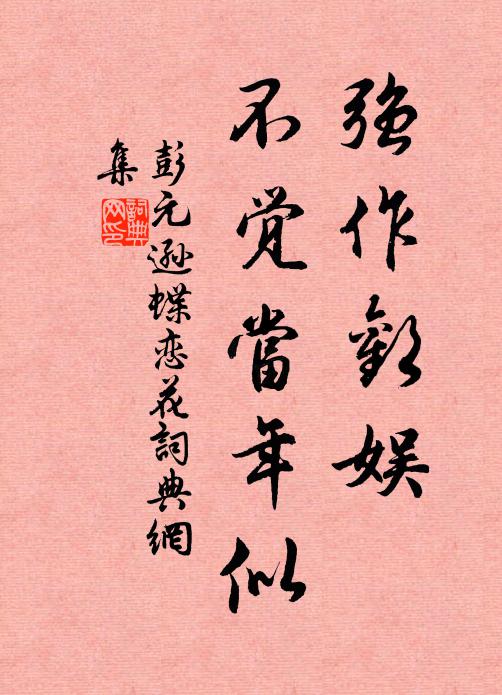 强作歡娱
不觉當年似
彭元遜蝶恋花詞典網
集
詞典
网印